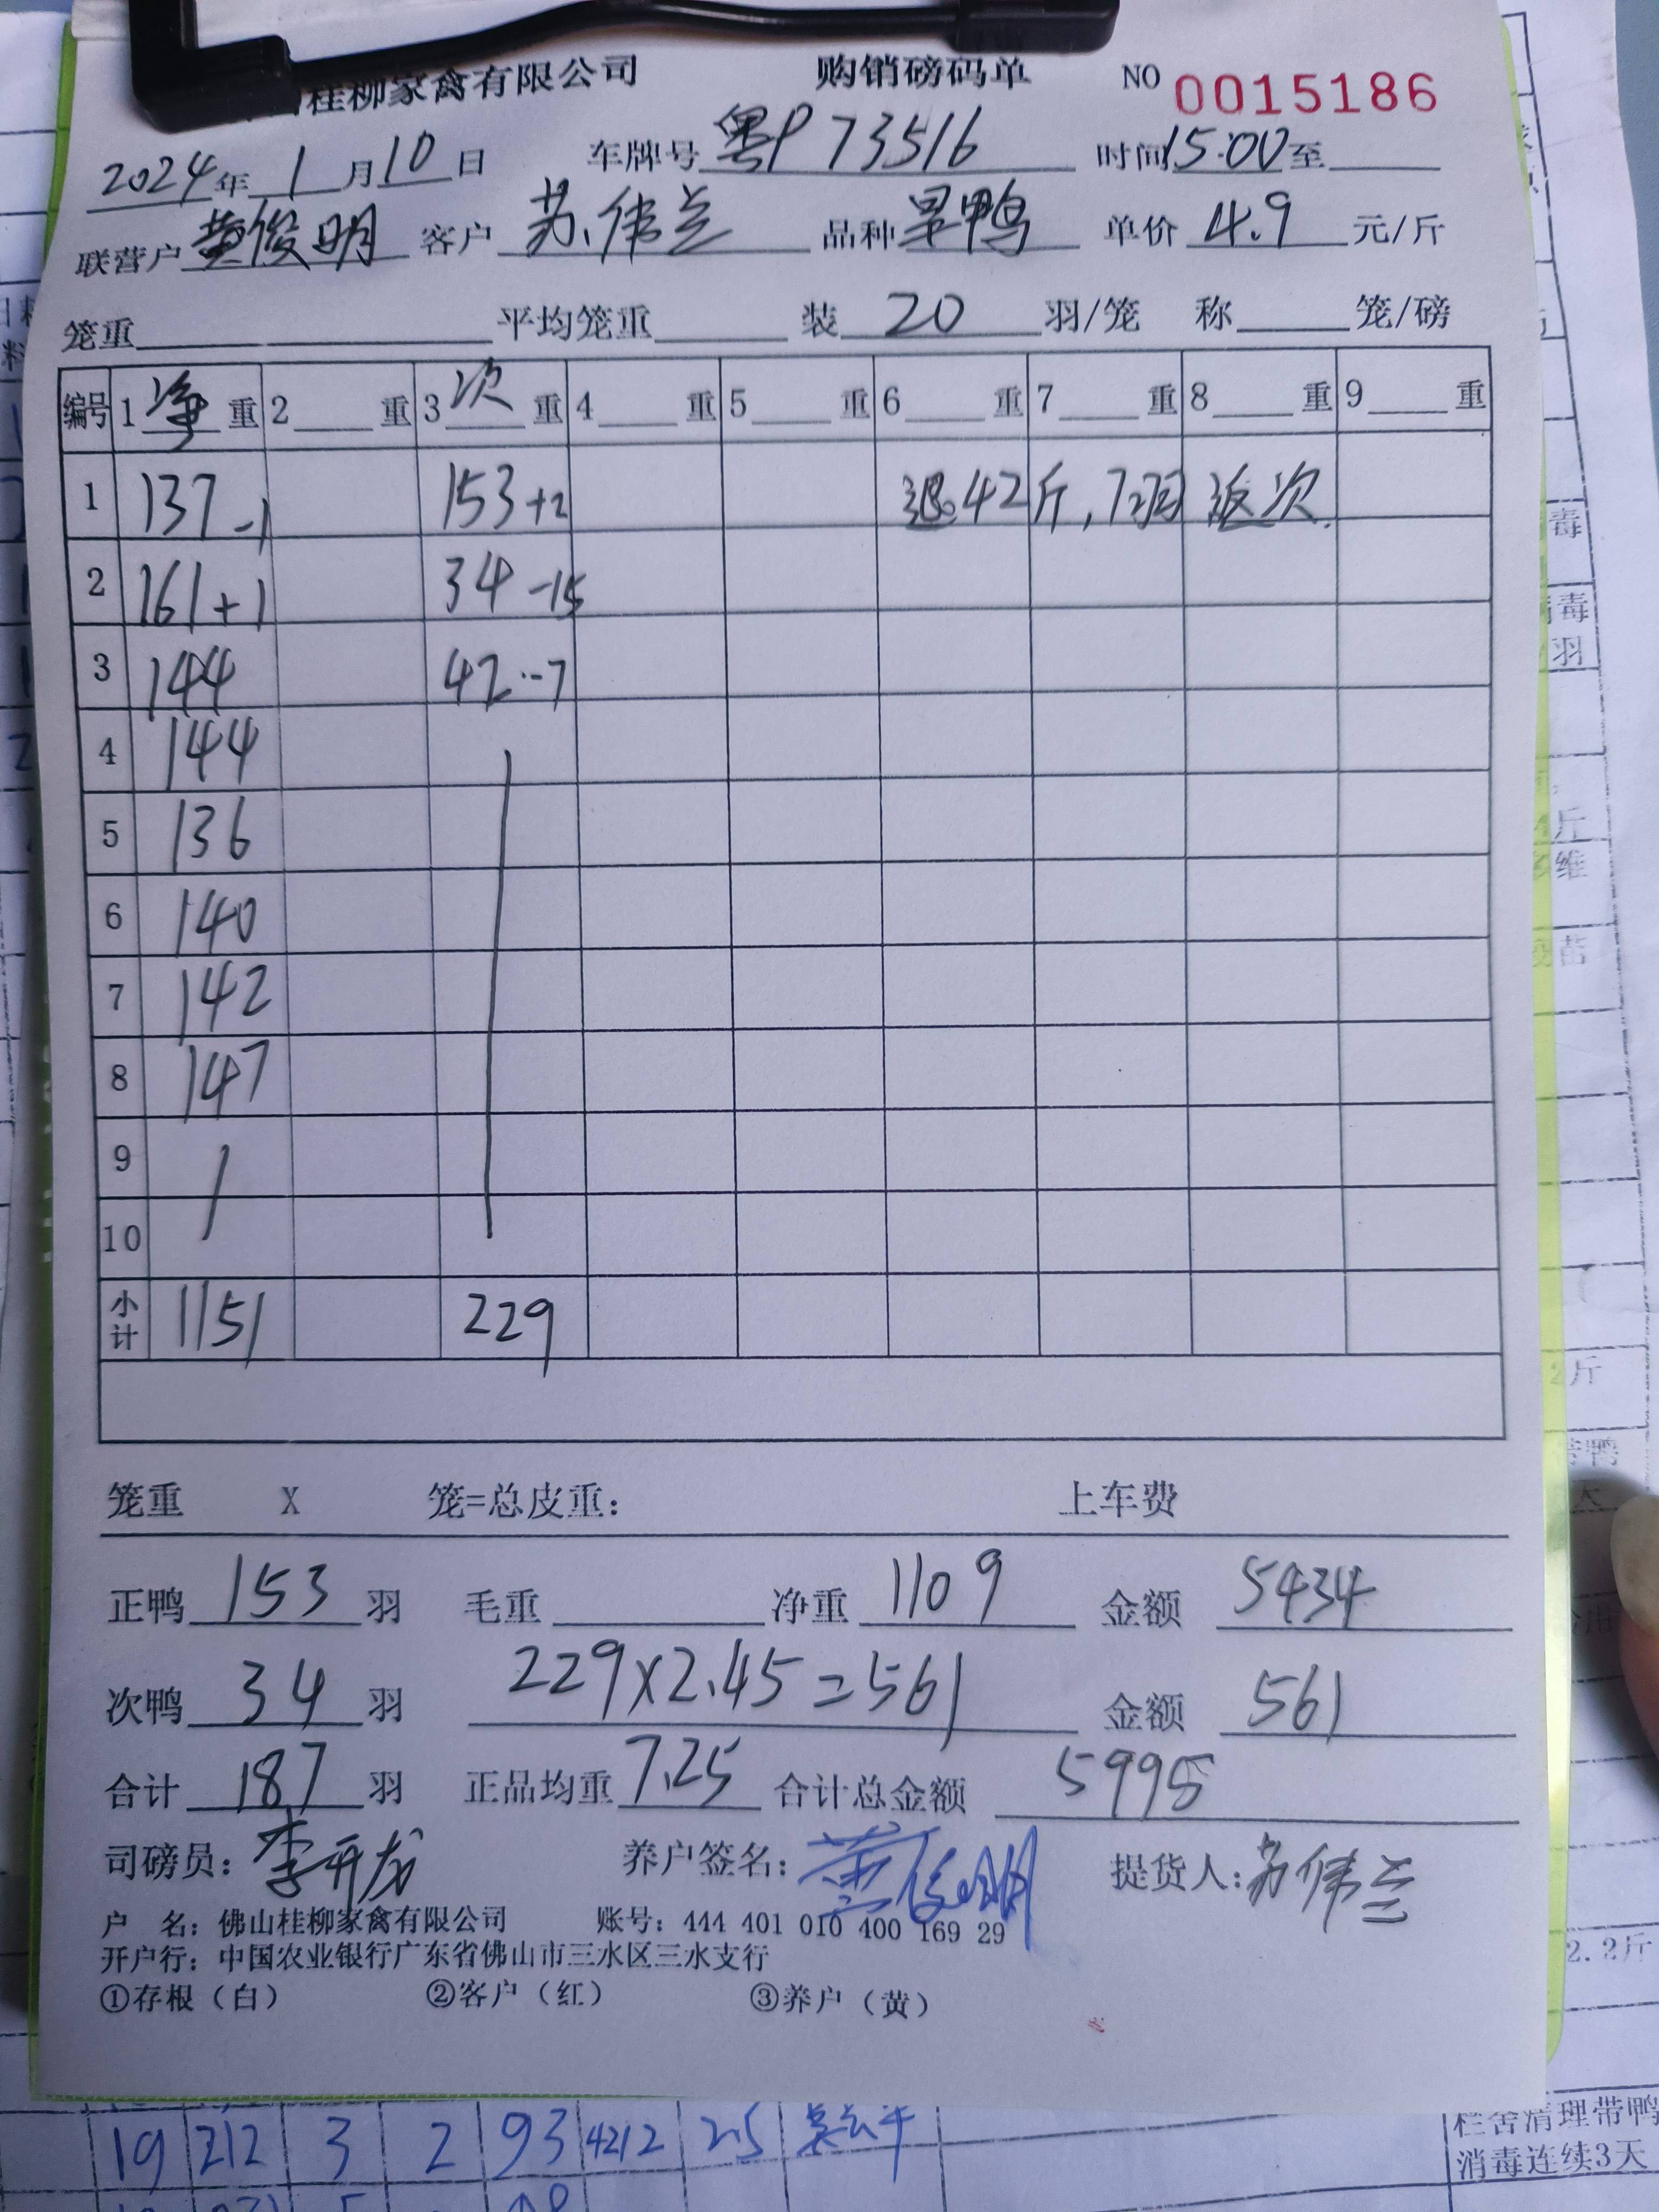 桂柳家禽有限公司 购销磅码单 NO 0015186
2024年 1月10日 车牌号 粤P73516 时间15:00至
联营户 黄俊明 客户 苏伟兰 品种 旱鸭 单价 4.9 元/斤
笼重 平均笼重 装 20 羽/笼 称 笼/磅
编号 1 净 重 2 重 3 次 重 4 重 5 重 6 重 7 重 8 重 9 重
1 137-1 153+2 退42斤,7羽 返次.
2 161+1 34-15
3 144 42--7
4 144
5 136
6 140
7 142
8 147
9
10
小计 1151 229
笼重 X 笼=总皮重: 上车费
正鸭 153 羽 毛重 净重 1109 金额 5434
次鸭 34 羽 229×2.45=561 金额 561
合计 187 羽 正品均重 7.25 合计总金额 5995
司磅员: 李开龙 养户签名: 黄俊明 提货人: 苏伟兰
户 名: 佛山桂柳家禽有限公司 账号: 444 401 010 400 169 29
开户行: 中国农业银行广东省佛山市三水区三水支行
①存根(白) ②客户(红) ③养户(黄)
19 212 3 2 93 4212 2.5
栏舍清理带鸭
消毒连续3天